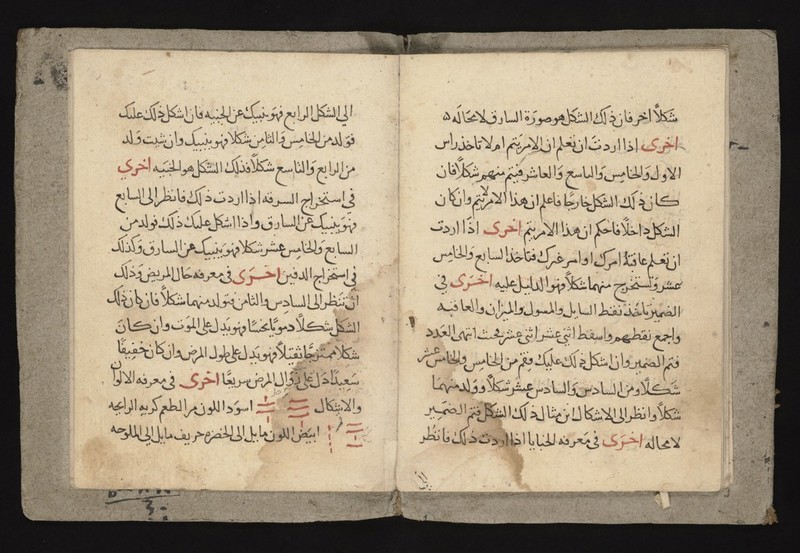 شكلًا اخر فان ذلك الشكل هو صورة السارق لا محاله
اخرى اذا اردت ان تعلم ان الامر يتم ام لا تاخذ راس
الاول والخامس والتاسع والعاشر فيتم منهم شكلًا فان
كان ذلك الشكل خارجًا فاعلم ان هذا الامر لا يتم وان كان
الشكل داخلًا فاحكم ان هذا الامر يتم اخرى اذا اردت
ان تعلم عاقبة امرك او امر غيرك فتاخذ السابع والخامس
عشر وتستخرج منهما شكلًا فهو الدليل عليه اخرى في
الضمير تاخذ نقط السايل والمسول والميزان والعاقبه
واجمع نقطهم واسقط اثنى عشر اثنى عشر فحيث انتهى العدد
فثم الضمير وان اشكل ذلك عليك فقم من الخامس والخامس عشر
شكلًا ومن السادس والسادس عشر شكلًا وولد منهما
شكلًا وانظر الى الاشكال اين مثال ذلك الشكل فثم الضمير
لا محاله اخرى في معرفه الخبايا اذا اردت ذلك فانظر
الي الشكل الرابع فهو ينبيك عن الخبيه فان اشكل ذلك عليك
فولد من الخامس والثامن شكلًا فهو ينبيك وان شيت ولد
من الرابع والتاسع شكلًا فذلك الشكل هو الخبيه اخرى
في استخراج السرقه اذا اردت ذلك فانظر الى السابع
فهو ينبيك عن السارق واذا اشكل عليك ذلك فولد من
السابع والخامس عشر شكلًا فهو ينبيك عن السارق وكذلك
في استخراج الدفين اخرى في معرفه حال المريض وذلك
ان تنظر الى السادس والثامن فتولد منهما شكلًا فان كان ذلك
الشكل شكلًا دمويًا نحسًا فهو يدل على الموت وان كان
شكلًا ممتزجًا ثقيلًا فهو يدل على طول المرض وان كان خفيفًا
سعيدًا دل على زوال المرض سريعًا اخرى في معرفه الالوان
والاشكال اسود اللون مر الطعم كريه الرايحه
ابيض اللون مايل الى الخضره حريف مايل الى الملوحه